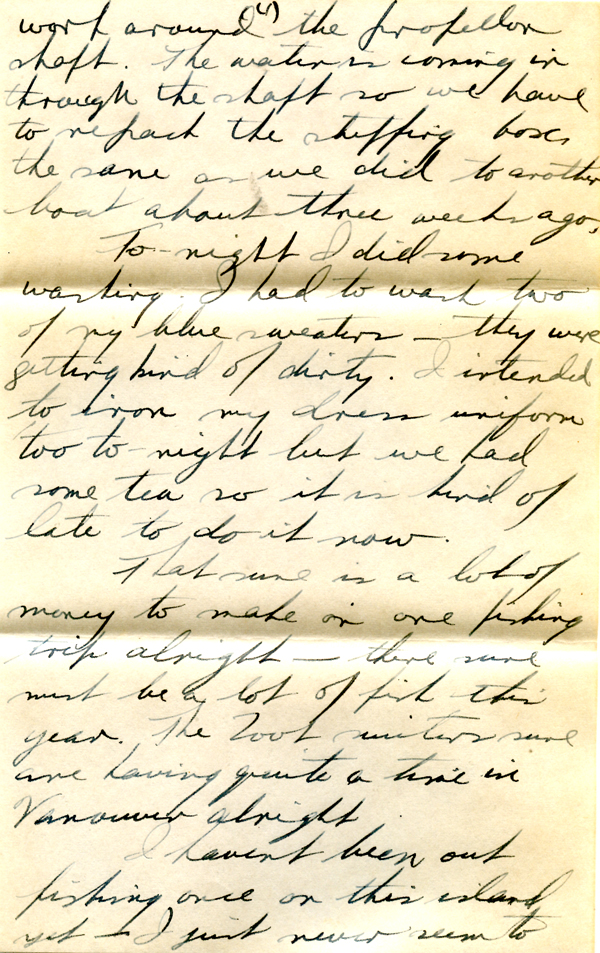 (4)
work around the propellor
shaft. The water is coming in
through the shaft so we have
to repack the stuffing boxes
the same as we did to another
boat about three weeks ago.
To-night I did some
washing. I had to wash two
of my blue sweaters — they were
getting kind of dirty. I intended
to iron my dress uniform
too to-night but we had
some tea so it is kind of
late to do it now.
That sure is a lot of
money to make in one fishing
trip alright — there sure
must be a lot of fish this
year. The Zoot suiters sure
are having quite a time in
Vancouver alright
I havent been out
fishing once on this island
yet — I just never seem to